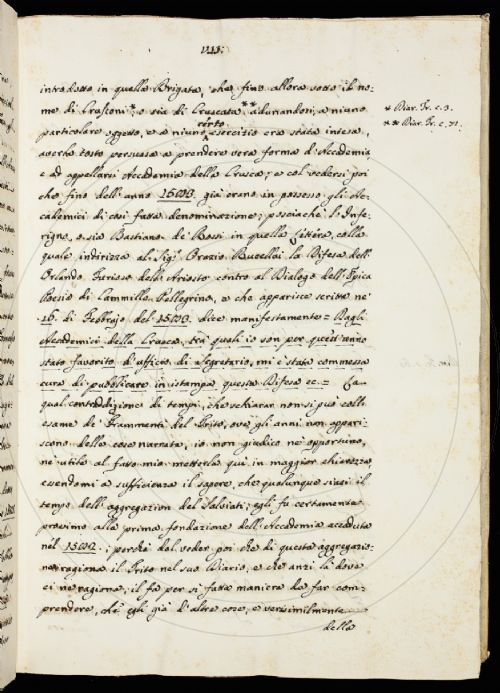 VII.
introdotto in quella Brigata, che fino allora sotto il no-
me di Crusconi*, o sia di Cruscata** adunandosi, a niuno
* Diar. Tr. c. 3.
** Diar. Tr. c. 71.
certo
particolare oggetto, e a niuno esercizio era stata intesa,
averla tosto persuasa a prendere vera forma d'Accademia,
e ad appellarsi Accademia della Crusca; e col vedersi poi
che fino dell'anno già erano in possesso gli Ac-
cademici di così fatta denominazione; posciachè l'Infe-
rigno, o sia Bastiano de' Rossi in quella Lettera, colla
quale indirizza al Sig. Orazio Rucellai la Difesa dell'
Orlando Furioso dell'Ariosto contro al Dialogo dell'Epica
Poesia di Cammillo Pellegrino, e che apparisce scritta ne'
16. di Febbrajo del dice manifestamente = Dagli
Accademici della Crusca, tra' quali io son per quest'anno
stato favorito d'ufficio di Segretario, mi è stata commessa
cura di pubblicare in istampa questa Difesa ec. = La
qual contraddizione di tempi, che schiarar non si può coll'
esame de' Frammenti del Trito, ove gli anni non appari-
scono delle cose narrate, io non giudico nè opportuno,
nè utile al fatto mio metterla qui in maggior chiarezza,
essendomi a sufficienza il sapere, che qualunque siasi il
tempo dell'aggregazion del Salviati; egli fu certamente
provino alla prima fondazione dell'Accademia accaduta
nel : perchè dal veder poi che di questa aggregazio-
ne ragiona il Trito nel suo Diario, e che anzi là dove
ei ne ragiona, il fa per sì fatta maniera da far com-
prendere, che egli già d'altre cose, e verisimilmente
della